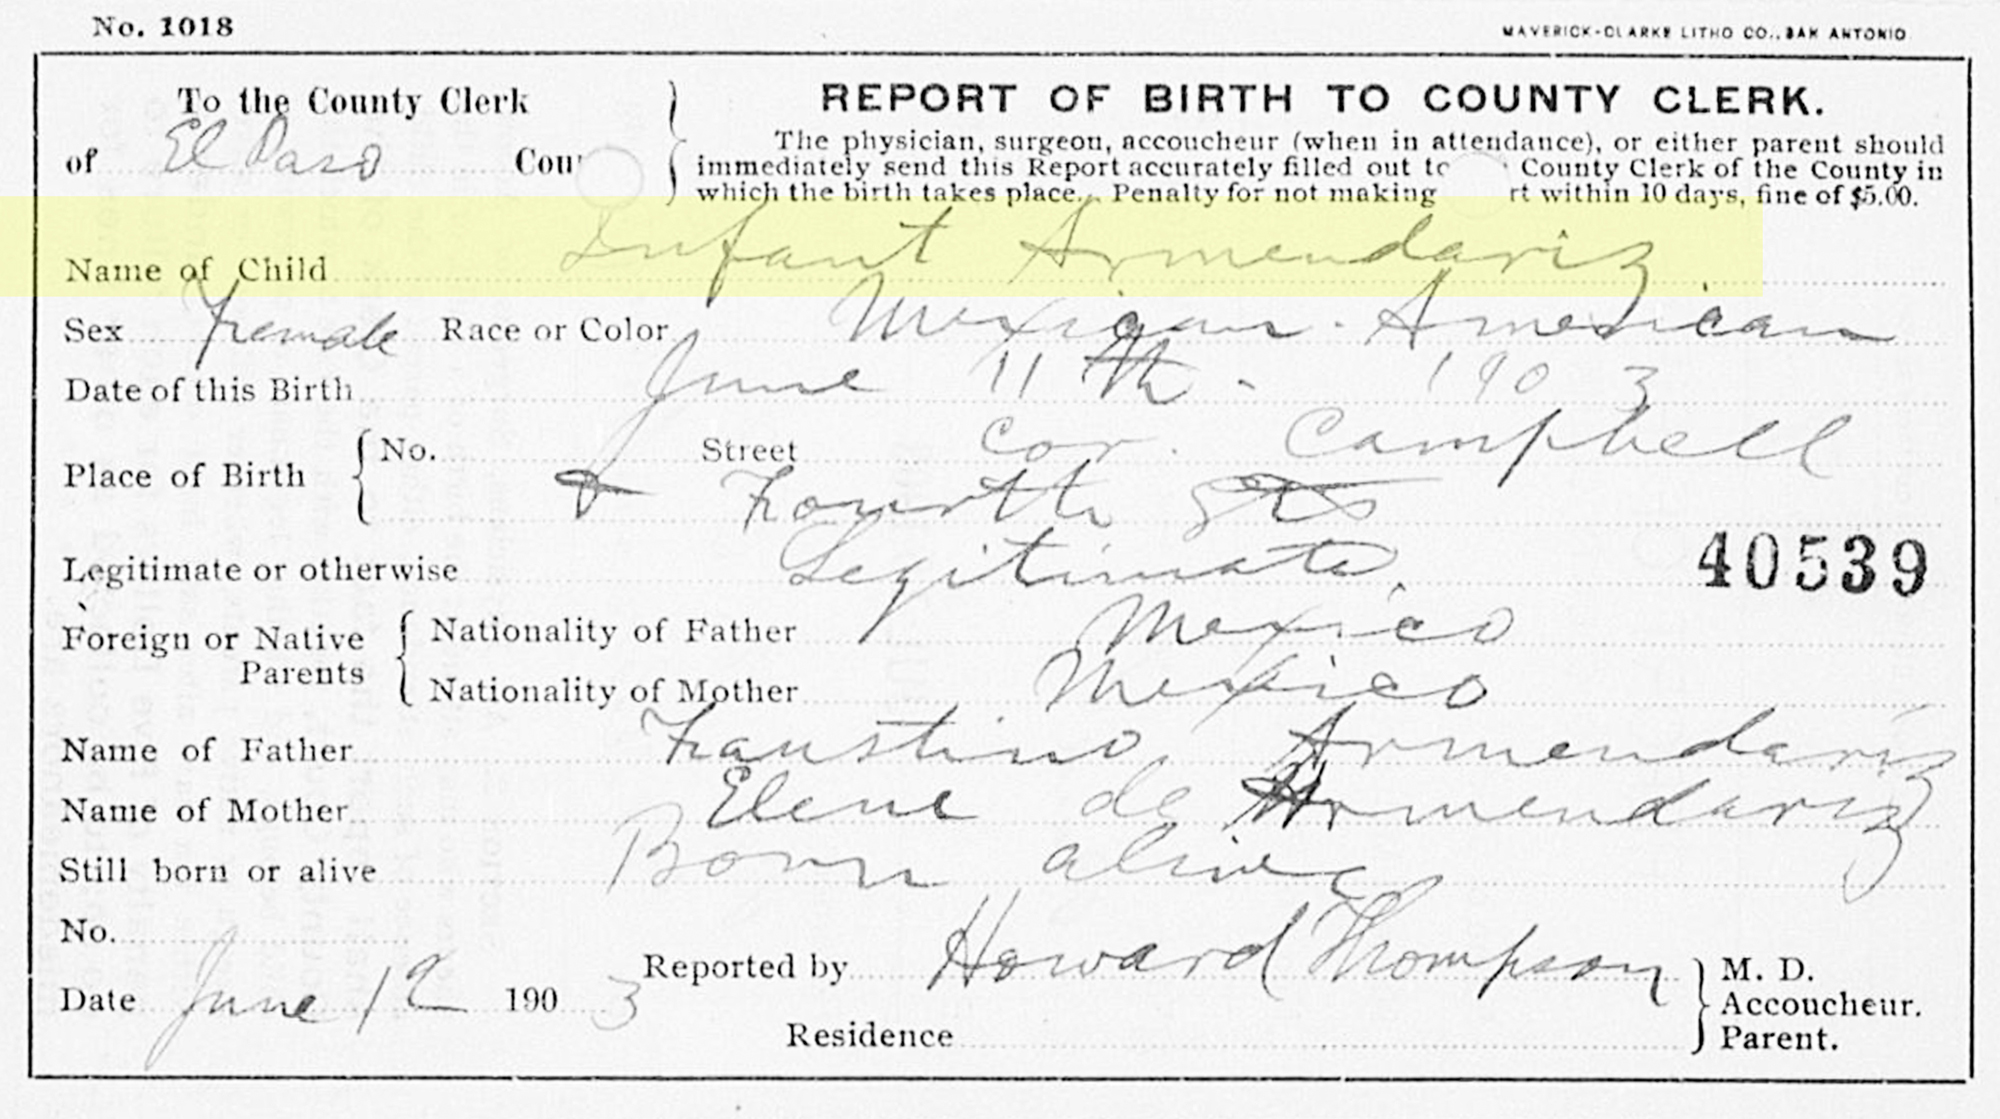 No. 1018
MAVERICK-CLARKE LITHO CO., SAN ANTONIO
To the County Clerk
of El Paso Coun
REPORT OF BIRTH TO COUNTY CLERK.
The physician, surgeon, accoucheur (when in attendance), or either parent should
immediately send this Report accurately filled out to County Clerk of the County in
which the birth takes place. Penalty for not making rt within 10 days, fine of $5.00.
Name of Child Infant Armendariz
Sex Female Race or Color Mexican - American
Date of this Birth June 11th - 1903
Place of Birth { No. Street Cor. Campbell
& Fourth Sts
Legitimate or otherwise Legitimate.
40539
Foreign or Native Parents { Nationality of Father Mexico
Nationality of Mother Mexico
Name of Father Faustino Armendariz
Name of Mother Elene de Armendariz
Still born or alive Born alive
No.
Date June 12 1903
Reported by Howard Thompson } M. D.
Accoucheur.
Residence Parent.